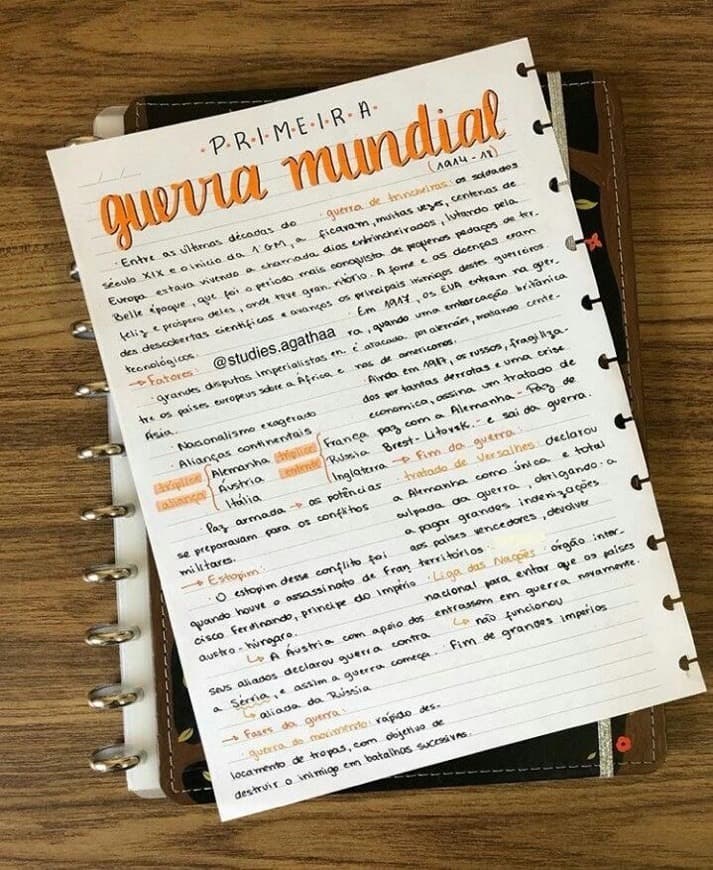 PRIMEIRA
guerra mundial
(1914-18)
· Entre as últimas décadas do
século XIX e o início da 1ª GM, a
Europa estava vivendo a chamada
Belle époque, que foi o período mais
feliz e próspero deles, onde teve gran
des descobertas científicas e avanços
tecnológicos.
→ Fatores:
· grandes disputas imperialistas en.
tre os países europeus sobre a África e
Ásia.
· Nacionalismo exagerado
· Alianças continentais
tríplice
aliança
Alemanha
Áustria
Itália
tríplice
entente
França
Rússia
Inglaterra
· Paz armada → as potências
se preparavam para os conflitos
militares.
→ Estopim:
· O estopim desse conflito foi
quando houve o assassinato de Fran
cisco Ferdinando, príncipe do Império
austro-húngaro.
↳ A Áustria com apoio dos
seus aliados declarou guerra contra
a Sérvia, e assim a guerra começa.
↳ aliada da Rússia
→ Fases da guerra:
· guerra do movimento: rápido des-
locamento de tropas, com objetivo de
destruir o inimigo em batalhas sucessivas.
· guerra de trincheiras: os soldados
ficaram, muitas vezes, centenas de
dias entrincheirados, lutando pela
conquista de pequenos pedaços de ter.
ritório. A fome e as doenças eram
os principais inimigos destes guerreiros.
· Em 1917, os EUA entram na guer
ra, quando uma embarcação britânica
é atacada por alemães, matando cente-
nas de americanos.
· Ainda em 1917, os russos, fragiliza-
dos por tantas derrotas e uma crise
econômica, assina um tratado de
paz com a Alemanha - Paz de
Brest-Litovsk. - e sai da guerra.
→ Fim da guerra:
· tratado de Versalhes: declarou
a Alemanha como única e total
culpada da guerra, obrigando-a
a pagar grandes indenizações
aos países vencedores, devolver
territórios.
· Liga das Nações: órgão inter.
nacional para evitar que os países
entrassem em guerra novamente.
↳ não funcionou
· Fim de grandes impérios
@studies.agathaa